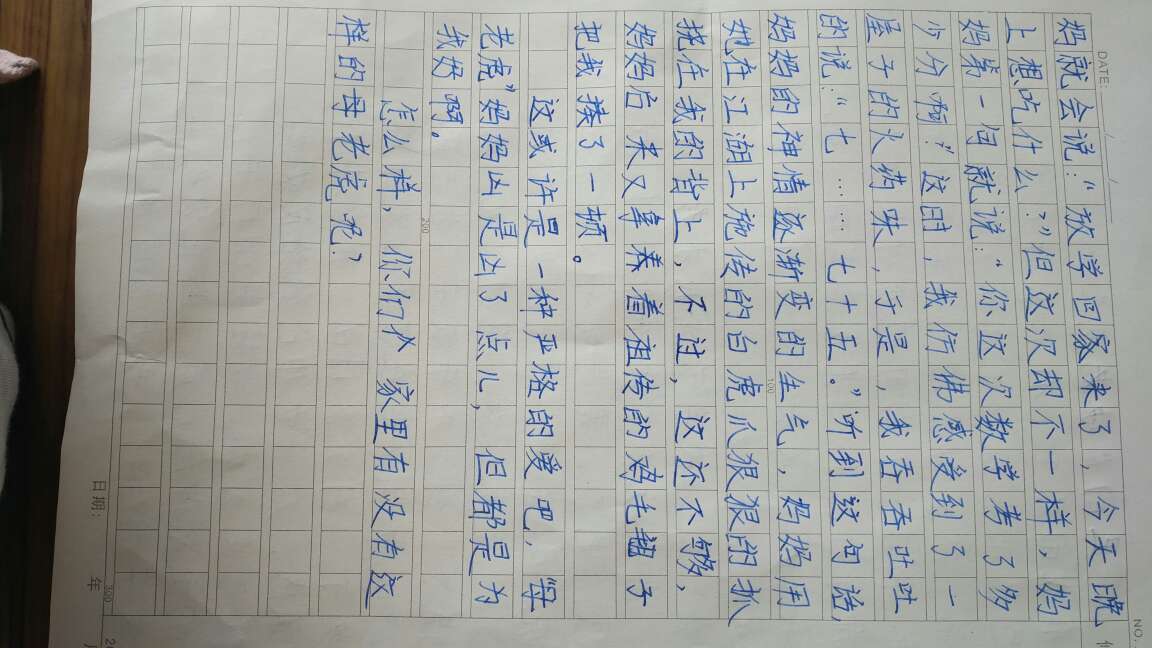 DATE:
NO.
妈就会说:“放学回家来了,今天晚
上想吃什么?”但这次却不一样,妈
妈第一句就说:“你这次数学考了多
少分啊?”这时,我仿佛感受到了一
屋子的火药味,于是,我吞吞吐吐
的说:“七……七十五。”听到这句话,
妈妈的神情逐渐变的生气,妈妈用
100
她在江湖上施传的白虎爪狠狠的抓
挠在我的背上,不过,这还不够,
妈妈后来又拿养着祖传的鸡毛子
把我揍了一顿。
这或许是一种严格的爱吧,“母
老虎”妈妈凶是凶了点儿,但都是为
我好啊。
200
怎么样,你们家里有没有这
样的母老虎呢?
300
日期: 年